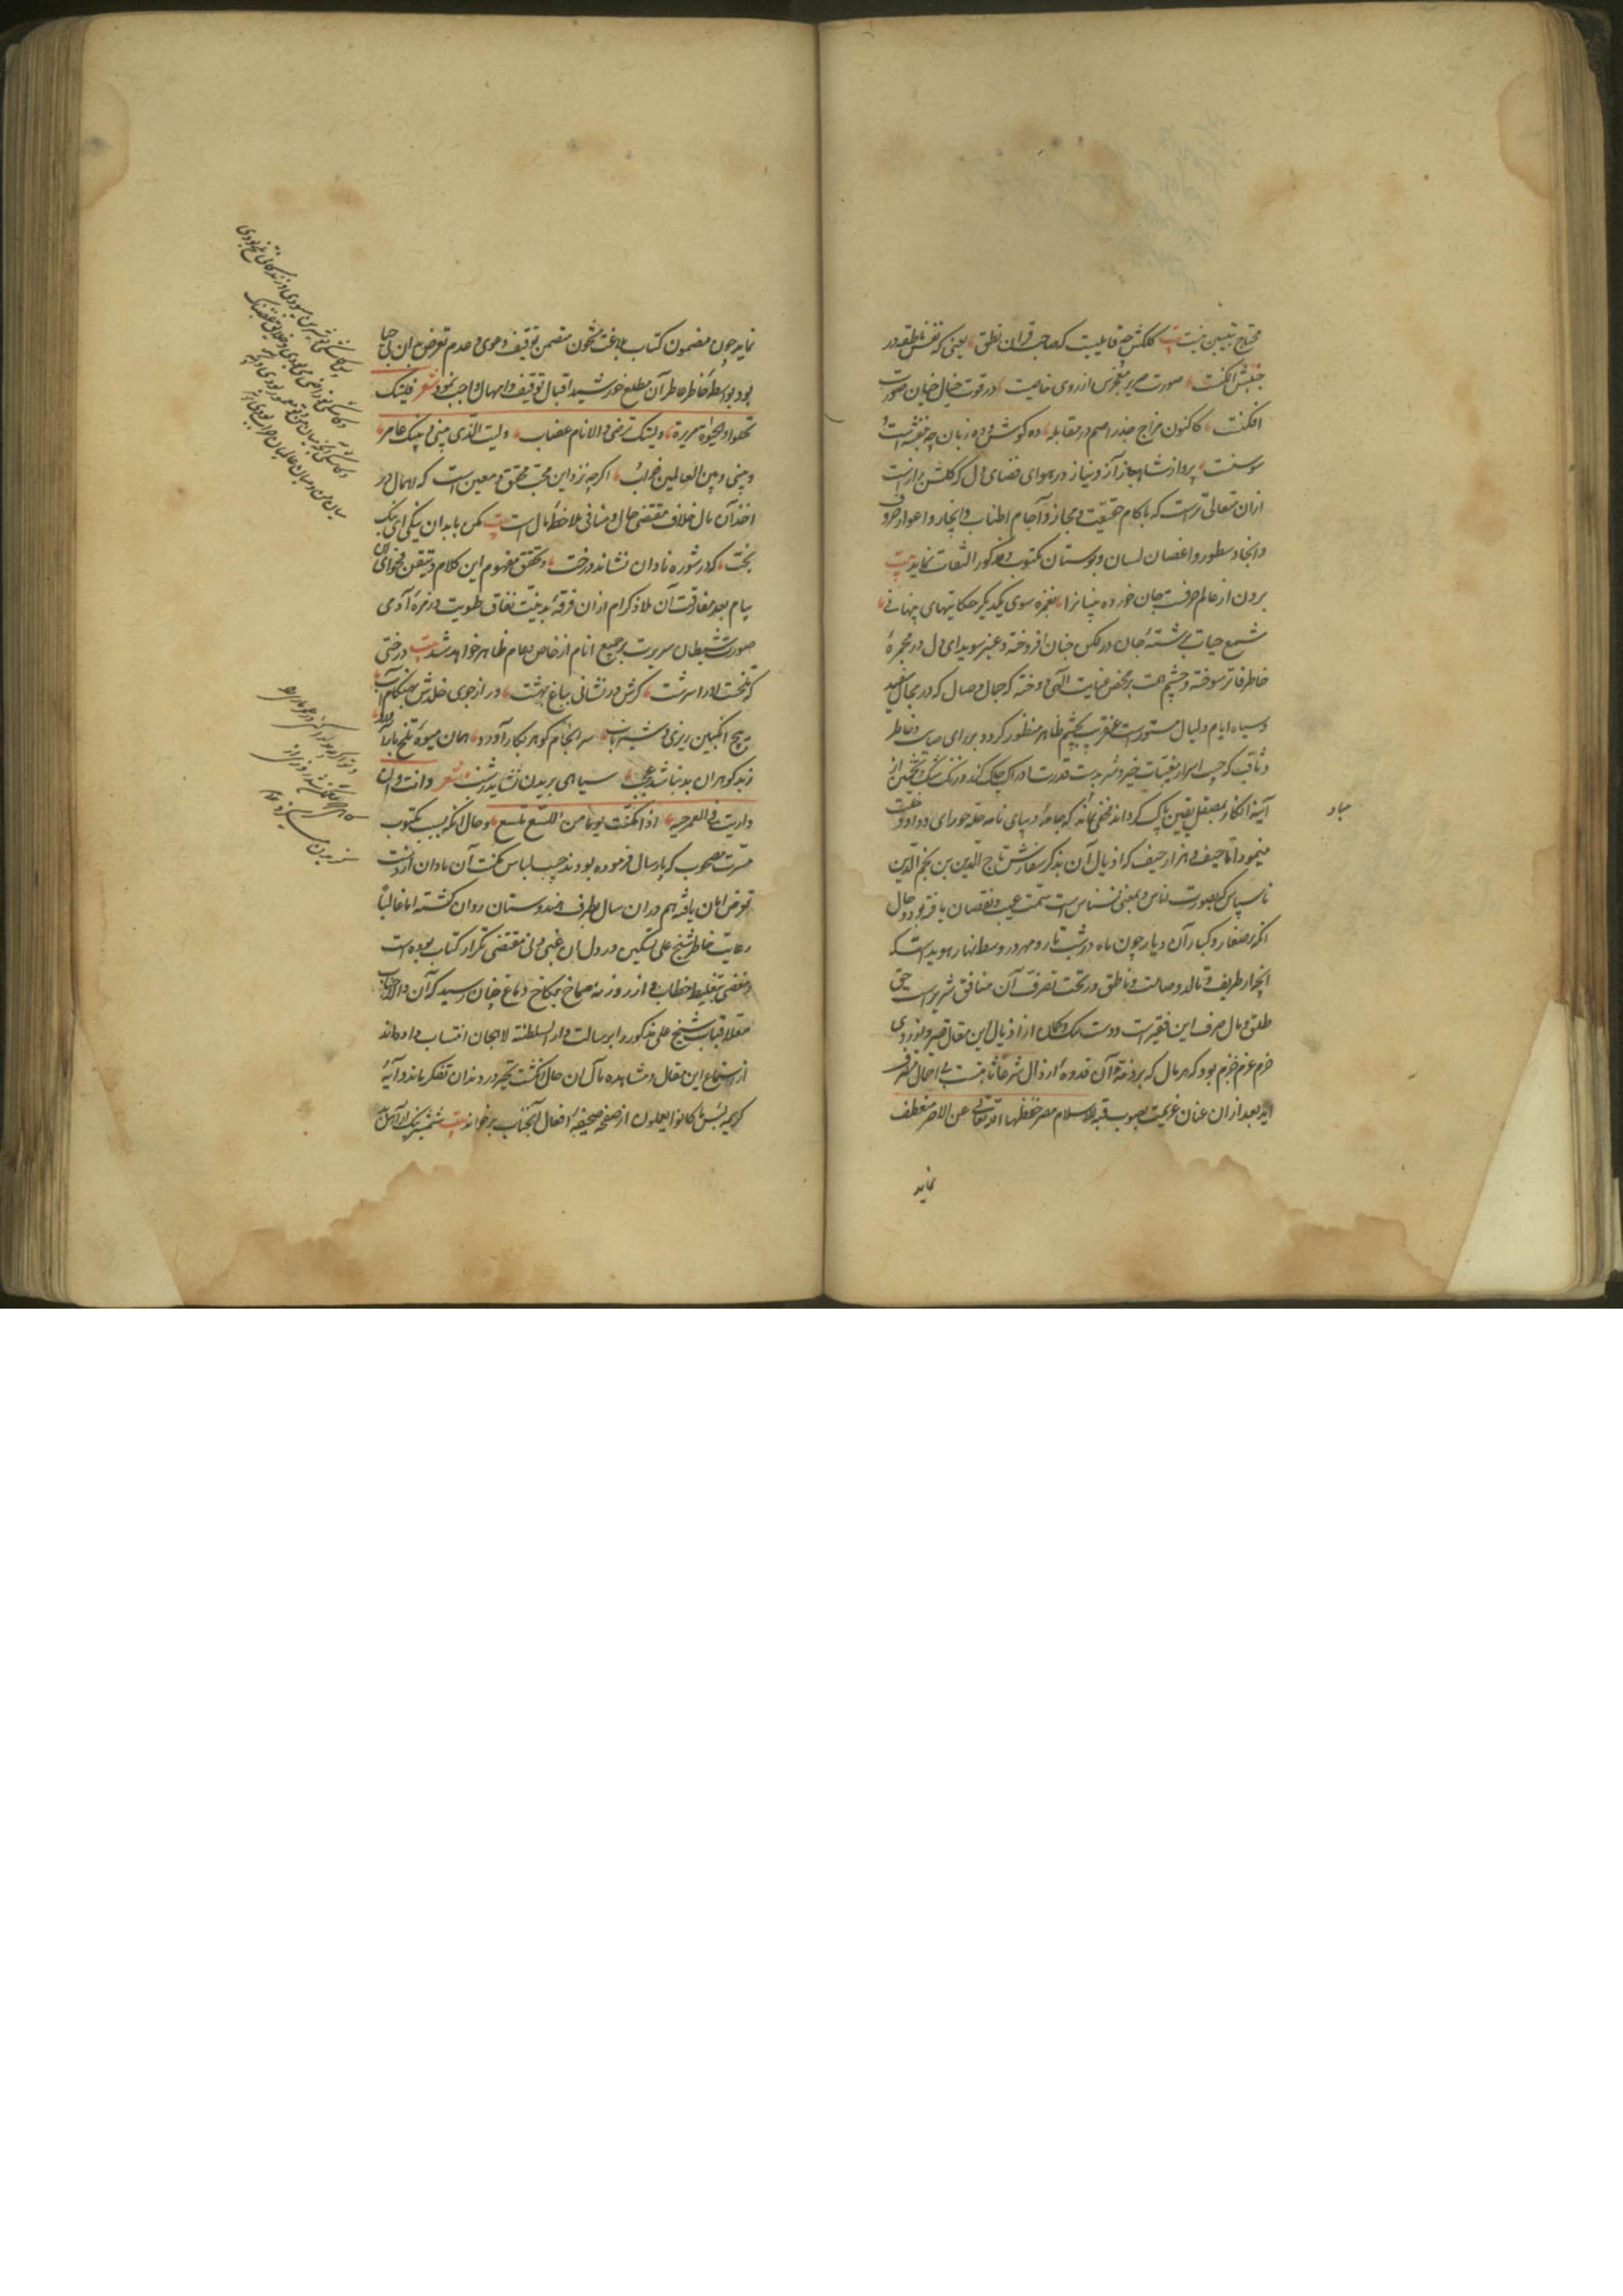 محتاج تبیین نیست بیت کلکش چه قابلیت که صاحب قران نطق یعنی که نفس ناطقه در
جنبش انکشت صورت صریر معجزش از روی خاصیت در قوت خیال خیان صورت
افکنت کاکنون مزاج جذر اصم در مقابله ده کوش و ده زبان چو بنفشه است
سوسنت پرواز شاهباز آز و نیاز در هوای فضای دل که کلشن راز است
ازان متعالی تر است که باکام حقیقت و مجاز و آجام اطناب و ایجاز و اعوار حروف
و انجاد سطور و اغصان لسان و بوستان مکتوب و مذکور التفات نماید بیت
برون از عالم حرفست جان خورده بینانرا بغمزه سوی یکدیکر حکایتهای پنهانی
شمع حیات بر شته جان در لکن جنان افروخته و عنبر سویدای دل در مجمره
خاطر فاتر سوخته و چشم همت بر محض عنایت الهی دوخته که جمال وصال که در حجاب سفید
و سیاه ایام و لیال مستور است عنقریب بچشم ظاهر منظور کردد بر رای صایب و خاطر
و ثاقب که جیب اسرار مغیبات خیر و شر بدست قدرت ادراک چاک کند و زنک شک و تخمین از
آینه افکار بمصقل یقین پاک کرداند مخفی نماند که جامه دیبای نامه حله حورای وداد و
مینمود اما حیف و هزار حیف که اذیال آن بذکر سفارش تاج الدین بن نجم الدین
ناسپاس که بصورت ناس و بمعنی نسناس است سمت عیب و نقصان یافته بود و حال
انکه بر صغار و کبار آن دیار چون ماه در شب تار و مهر در وسط نهار هویداست که
انچه از طریف و تالد و صامت و ناطق در تحت تصرف آن منافق شریر است حق
طلق و مال صرف این فقیر است و دست ملک وکلا از اذیال این مقال قصیر و
جزم عزم جزم بود که هر مال که بر ذمه آن قدوه ارذال شرعا ثابتست بی اهمال متصرف
اید بعد ازان عنان عزیمت بصوب قبة الاسلام مصر حفظها الله تعالی عن الاصر منعطف
نماید
نماید چون مضمون کتاب بلاغت مشحون متضمن توقیف دعوی و عدم تعرض بدان بی حیا
بود بواسطه خاطر عاطر آن مطلع خورشید اقبال توقیف و امهال واجب نمود شعر فلیتک
تحلو و الحیوة مریرة ولیتک ترضی و الانام غضاب ولیت الذی بینی و بینک عامر
و بینی و بین العالمین خراب اکر چه نزد این محب محقق و معین است که اهمال در
اخذ آن مال خلاف مقتضی حال و منافی ملاحظه مال است بیت مکن با بدان نیکی ای نیک
بخت که در شوره نادان نشاند درخت و تحقق مفهوم این کلام و تیقن فحوای این
پیام بعد مفارقت آن ملاذ کرام ازان فرقه بدنیت نفاق طویت در زمره آدمی
صورت شیطان سریرت بر جمیع انام از خاص و عام ظاهر خواهد شد بیت درختی
که تلخست اورا سرشت کرش در نشانی بباغ بهشت ور از جوی خلدش بهنکام آب
به بیخ انکبین ریزی و شیر ناب سر انجام کوهر بکار آورد همان میوه تلخ بار آورد
ز بد کوهران بد نباشد عجب سیاهی بریدن نشاید ز شب شعر وانت وان
داریت فی العمر حیه اذا امکنت یوما من اللسع تلسع و حال انکه بسبب مکتوب
مسرت مصحوب که پارسال فرموده بودند چیب لباس مکنت آن نادان از دست
تعرض امان یافته هم دران سال بطرف هندوستان روان کشته اما غالبا
رعایت خاطر شیخ علی تسکین در دل آن غبی دنی مقتضی تکرار کتاب بوده است
و مفضی بتغلیظ خطاب و از روزنه صماخ بکاخ دماغ چنان رسید که آن والاجناب
معلا قباب شیخ علی مذکور را برسالت دار السلطنه لاهجان انتساب داده اند
از استماع این مقال و مشاهده مآل ان حال انکشت تحیر در دندان تفکر بماند و آیه
کریمه لبئس ما کانوا یعملون از صفحه صحیفه افعال آنجناب بر خواند بیت شمشیر نیک از آهن بد